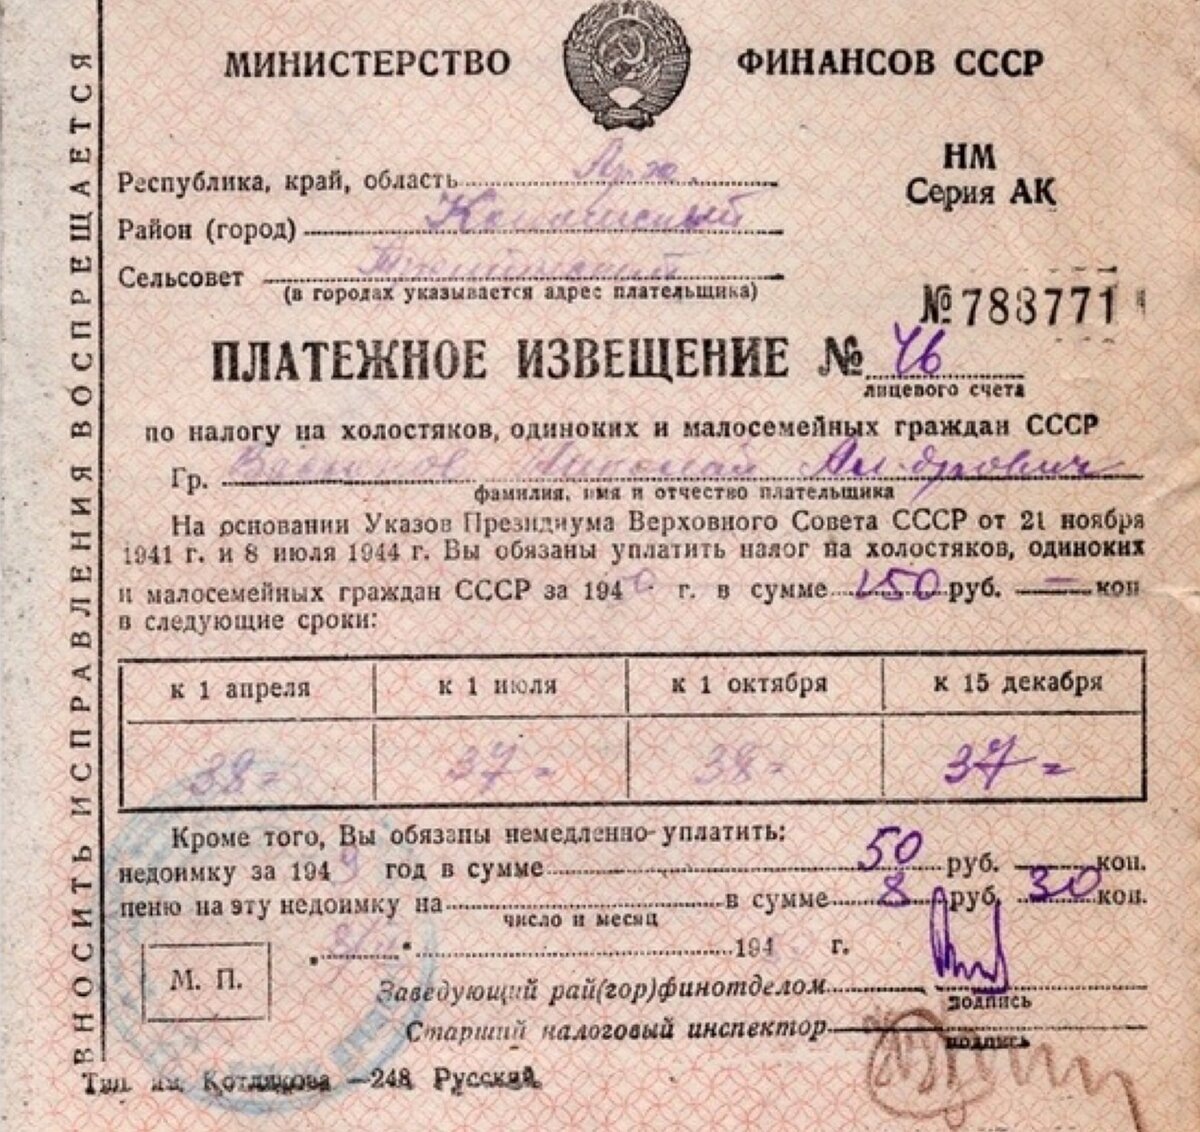 МИНИСТЕРСТВО ФИНАНСОВ СССР
НМ
Серия АК
Республика, край, область Арх.
Район (город)
Сельсовет
(в городах указывается адрес плательщика)
№ 788771
ПЛАТЕЖНОЕ ИЗВЕЩЕНИЕ № 46
лицевого счета
по налогу на холостяков, одиноких и малосемейных граждан СССР
Гр. Николай
фамилия, имя и отчество плательщика
На основании Указов Президиума Верховного Совета СССР от 21 ноября
1941 г. и 8 июля 1944 г. Вы обязаны уплатить налог на холостяков, одиноких
и малосемейных граждан СССР за 194 г. в сумме 150 руб. — коп
в следующие сроки:
к 1 апреля к 1 июля к 1 октября к 15 декабря
38= 37= 38= 37=
Кроме того, Вы обязаны немедленно уплатить:
недоимку за 1949 год в сумме 50 руб. коп.
пеню на эту недоимку на в сумме 8 руб. 30 коп.
число и месяц
194 г.
М. П.
Заведующий рай(гор)финотделом
подпись
Старший налоговый инспектор
подпись
Тип. им. Котлякова —248 Русский.
ВНОСИТЬ ИСПРАВЛЕНИЯ ВОСПРЕЩАЕТСЯ